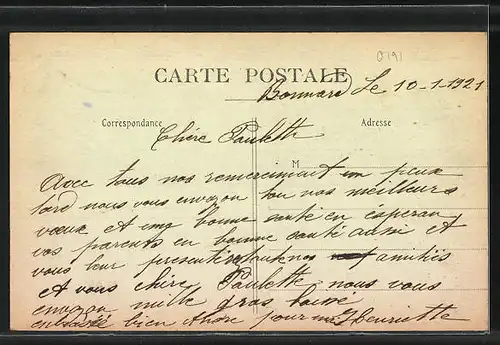 0191
CARTE POSTALE
Bonnard Le 10-1-1921
Correspondance
Adresse
Chère Paulette
M
Avec tous nos remerciment un peux
tard nous vous envoyon tou nos meilleurs
vœux et une bonne senté en ésperan
vos parents en bonne santé aussi et
vous leur presenterez nos amitiés
et vous chère Paulette nous vous
envoyon mille gros baisse
bien chère pour Henriette